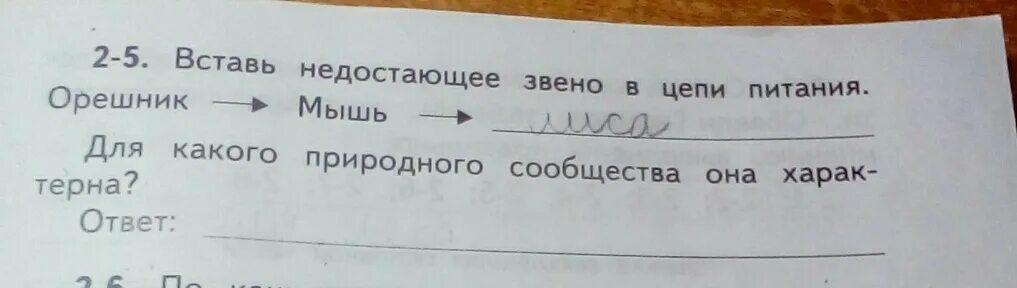 2-5. Вставь недостающее звено в цепи питания.
Орешник → Мышь → лиса
Для какого природного сообщества она харак-
терна?
Ответ:
2-6. По